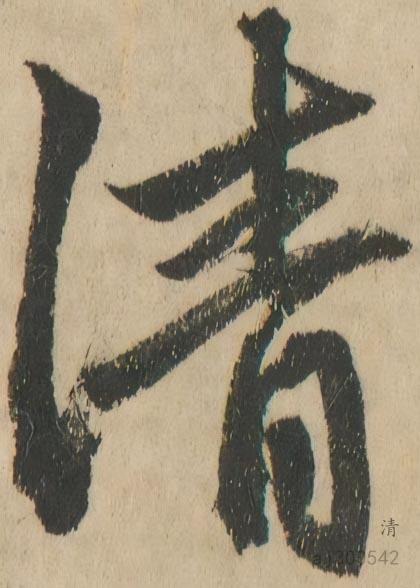 清
清
a1309542